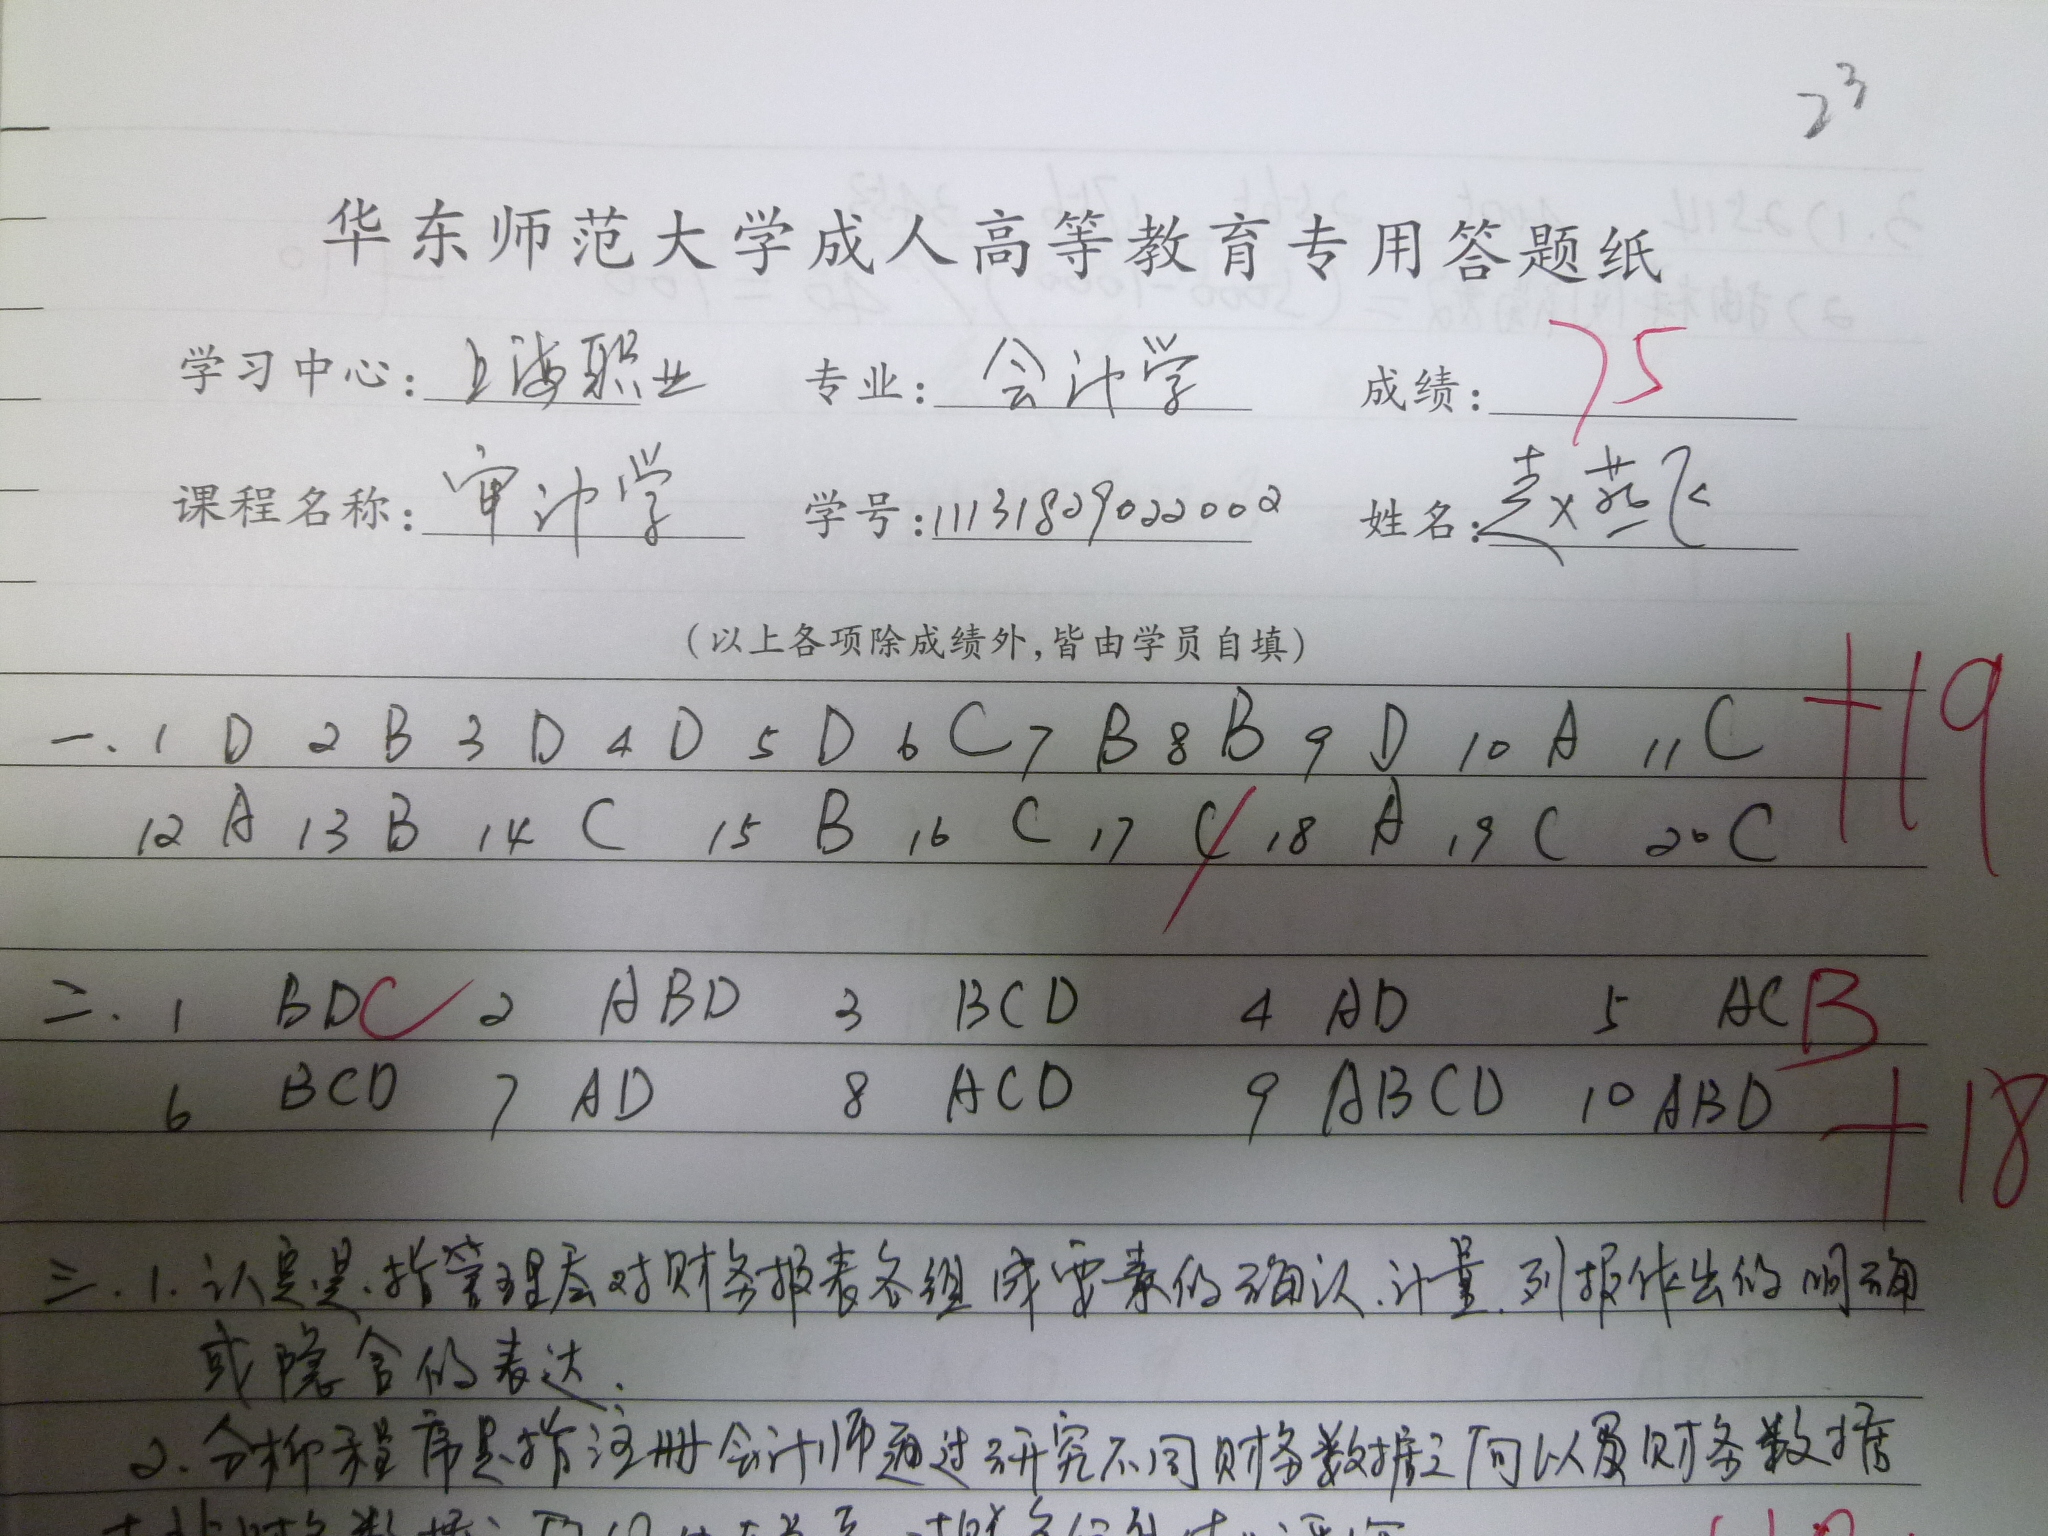 23
华东师范大学成人高等教育专用答题纸
学习中心: 上海职业 专业: 会计学 成绩: 75
课程名称: 审计学 学号: 11131829022002 姓名: 赵燕飞
(以上各项除成绩外,皆由学员自填)
一. 1 D 2 B 3 D 4 D 5 D 6 C 7 B 8 B 9 D 10 A 11 C +19
12 A 13 B 14 C 15 B 16 C 17 C 18 A 19 C 20 C
二. 1 BDC 2 ABD 3 BCD 4 AD 5 ACB
6 BCD 7 AD 8 ACD 9 ABCD 10 ABD +18
三. 1. 认定是指管理层对财务报表各组成要素的确认.计量.列报作出的明确
或隐含的表达.
2. 分析程序是指注册会计师通过研究不同财务数据之间以及财务数据